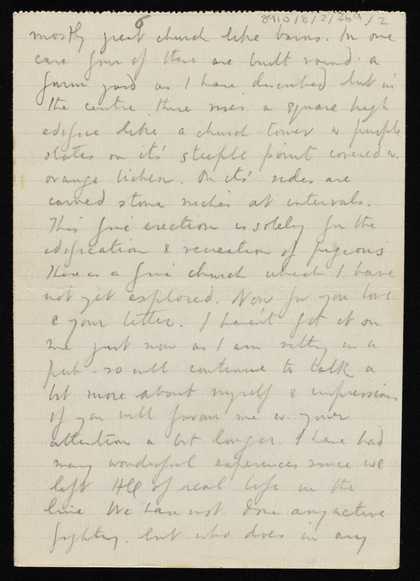 8
8910/8/2/264/2
mostly great church like barns. In one
case four of these are built round a
farm yard as I have described but in
the centre there rises a square high
edifice like a church tower w purple
slates on it's steeple point covered w.
orange lichen. On it's sides are
carved stone niches at intervals.
This fine erection is solely for the
edification & recreation of pigeons
There is a fine church which I have
not yet explored. Now for you love
& your letter. I havent got it on
me just now as I am sitting in a
pub. so will continue to talk a
bit more about myself & impressions
if you will favour me w. your
attention a bit longer. I have had
many wonderful experiences since we
left HQ of real life in the
line We have not done any active
fighting. but who does in any